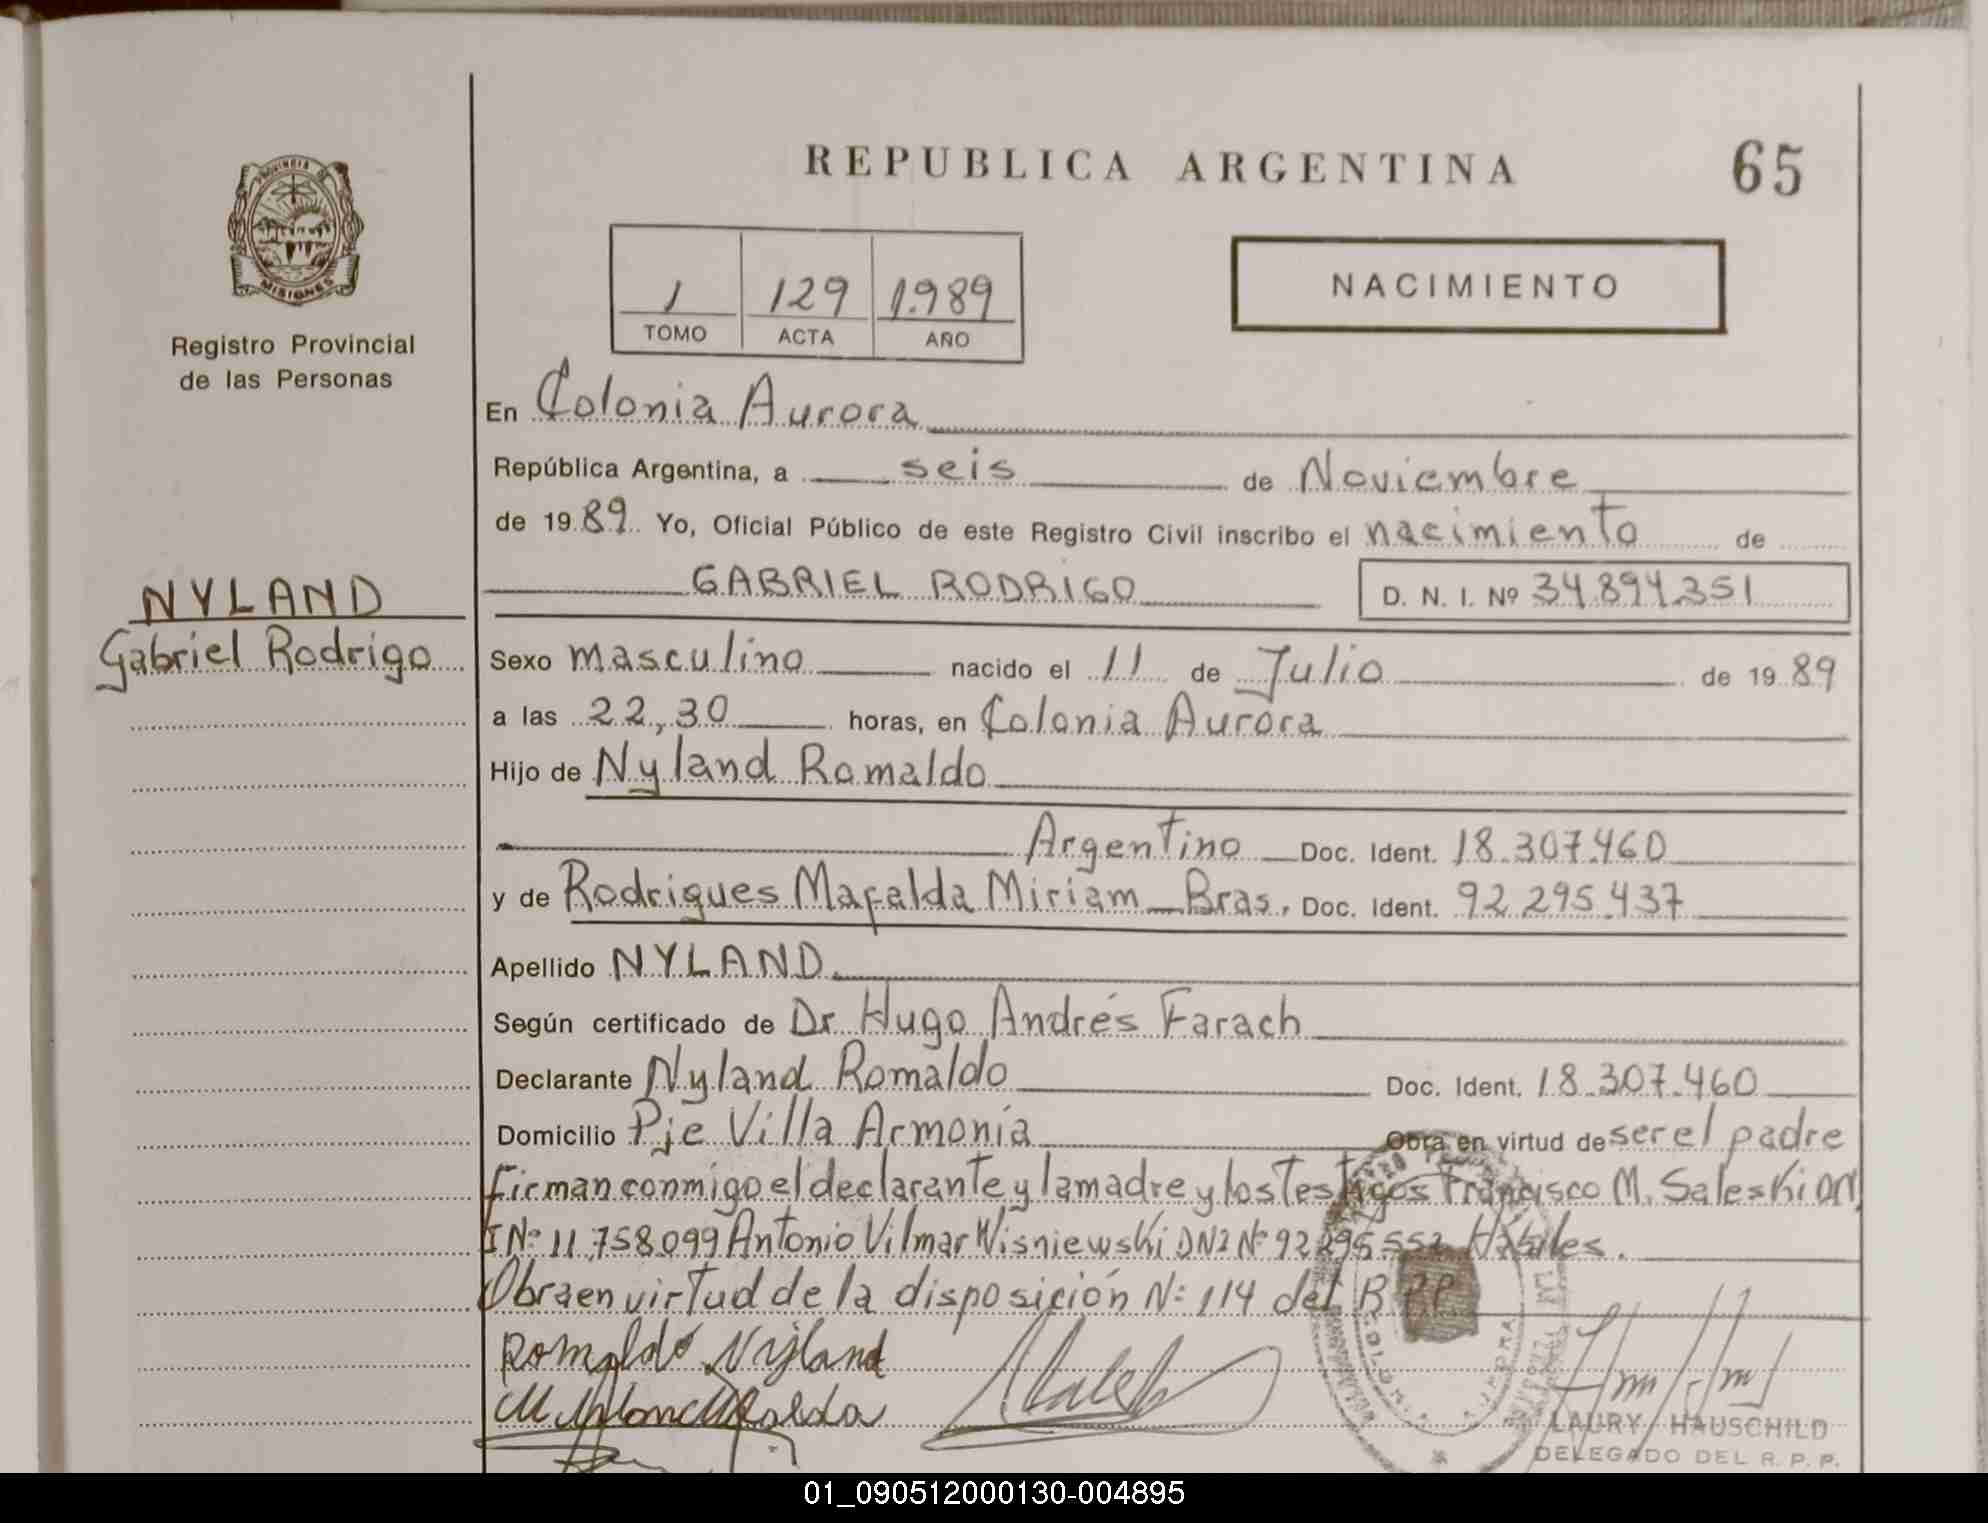 REPUBLICA ARGENTINA
65
PROVINCIA DE
MISIONES
Registro Provincial
de las Personas
1 129 1.989
TOMO ACTA AÑO
NACIMIENTO
En Colonia Aurora
República Argentina, a seis de Noviembre
de 1989 Yo, Oficial Público de este Registro Civil inscribo el nacimiento de
GABRIEL RODRIGO D. N. I. Nº 34.894.351
NYLAND
Gabriel Rodrigo
Sexo masculino nacido el 11 de Julio de 1989
a las 22,30 horas, en Colonia Aurora
Hijo de Nyland Romaldo
Argentino Doc. Ident. 18.307.460
y de Rodrigues Mafalda Miriam Bras. Doc. Ident. 92.295.437
Apellido NYLAND
Según certificado de Dr. Hugo Andrés Farach
Declarante Nyland Romaldo Doc. Ident. 18.307.460
Domicilio Pje Villa Armonía Obra en virtud de ser el padre
firman conmigo el declarante y la madre y los testigos Francisco M. Saleski DN
I Nº 11.758.099 Antonio Vilmar Wisniewski DNI Nº 92.295.552 Hábiles.
Obra en virtud de la disposición Nº 114 del R.P.P.
Romaldo Nyland
LAURY HAUSCHILD
DELEGADO DEL R. P. P.
01_090512000130-004895